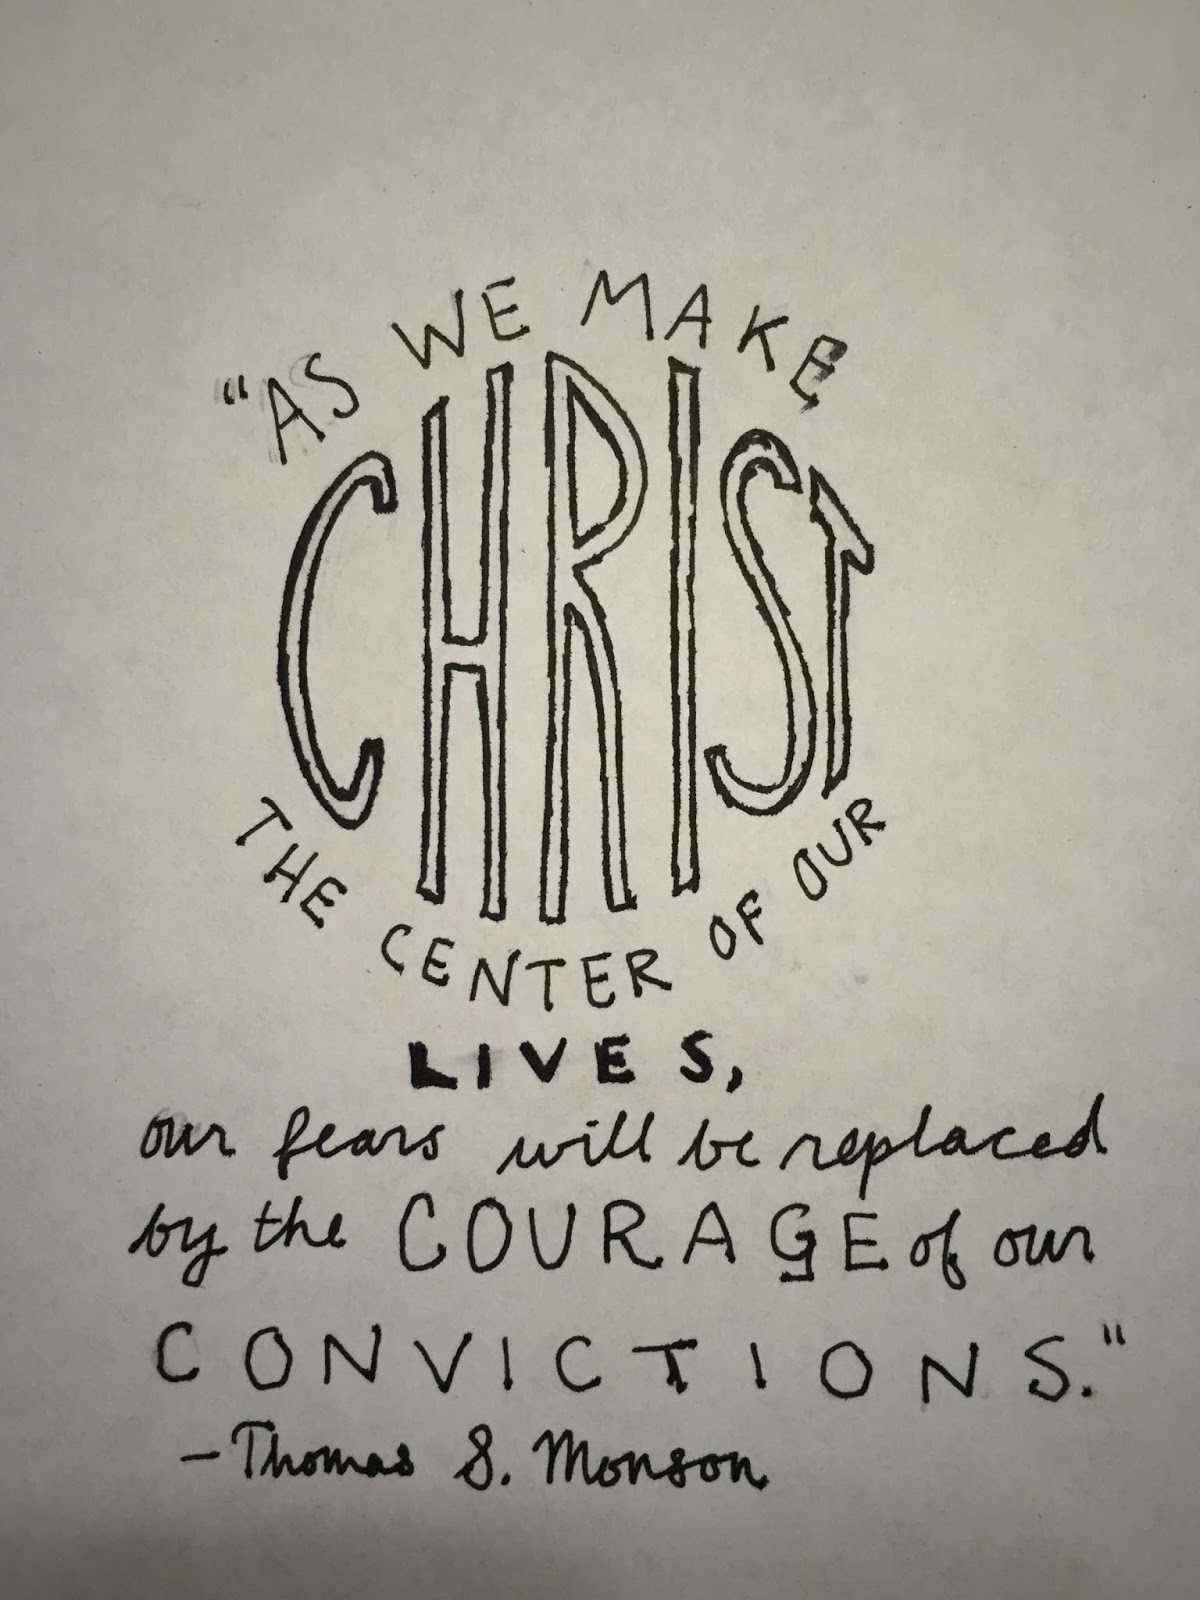 "AS WE MAKE
CHRIST
THE CENTER OF OUR
LIVES,
our fears will be replaced
by the COURAGE of our
CONVICTIONS."
-Thomas S. Monson